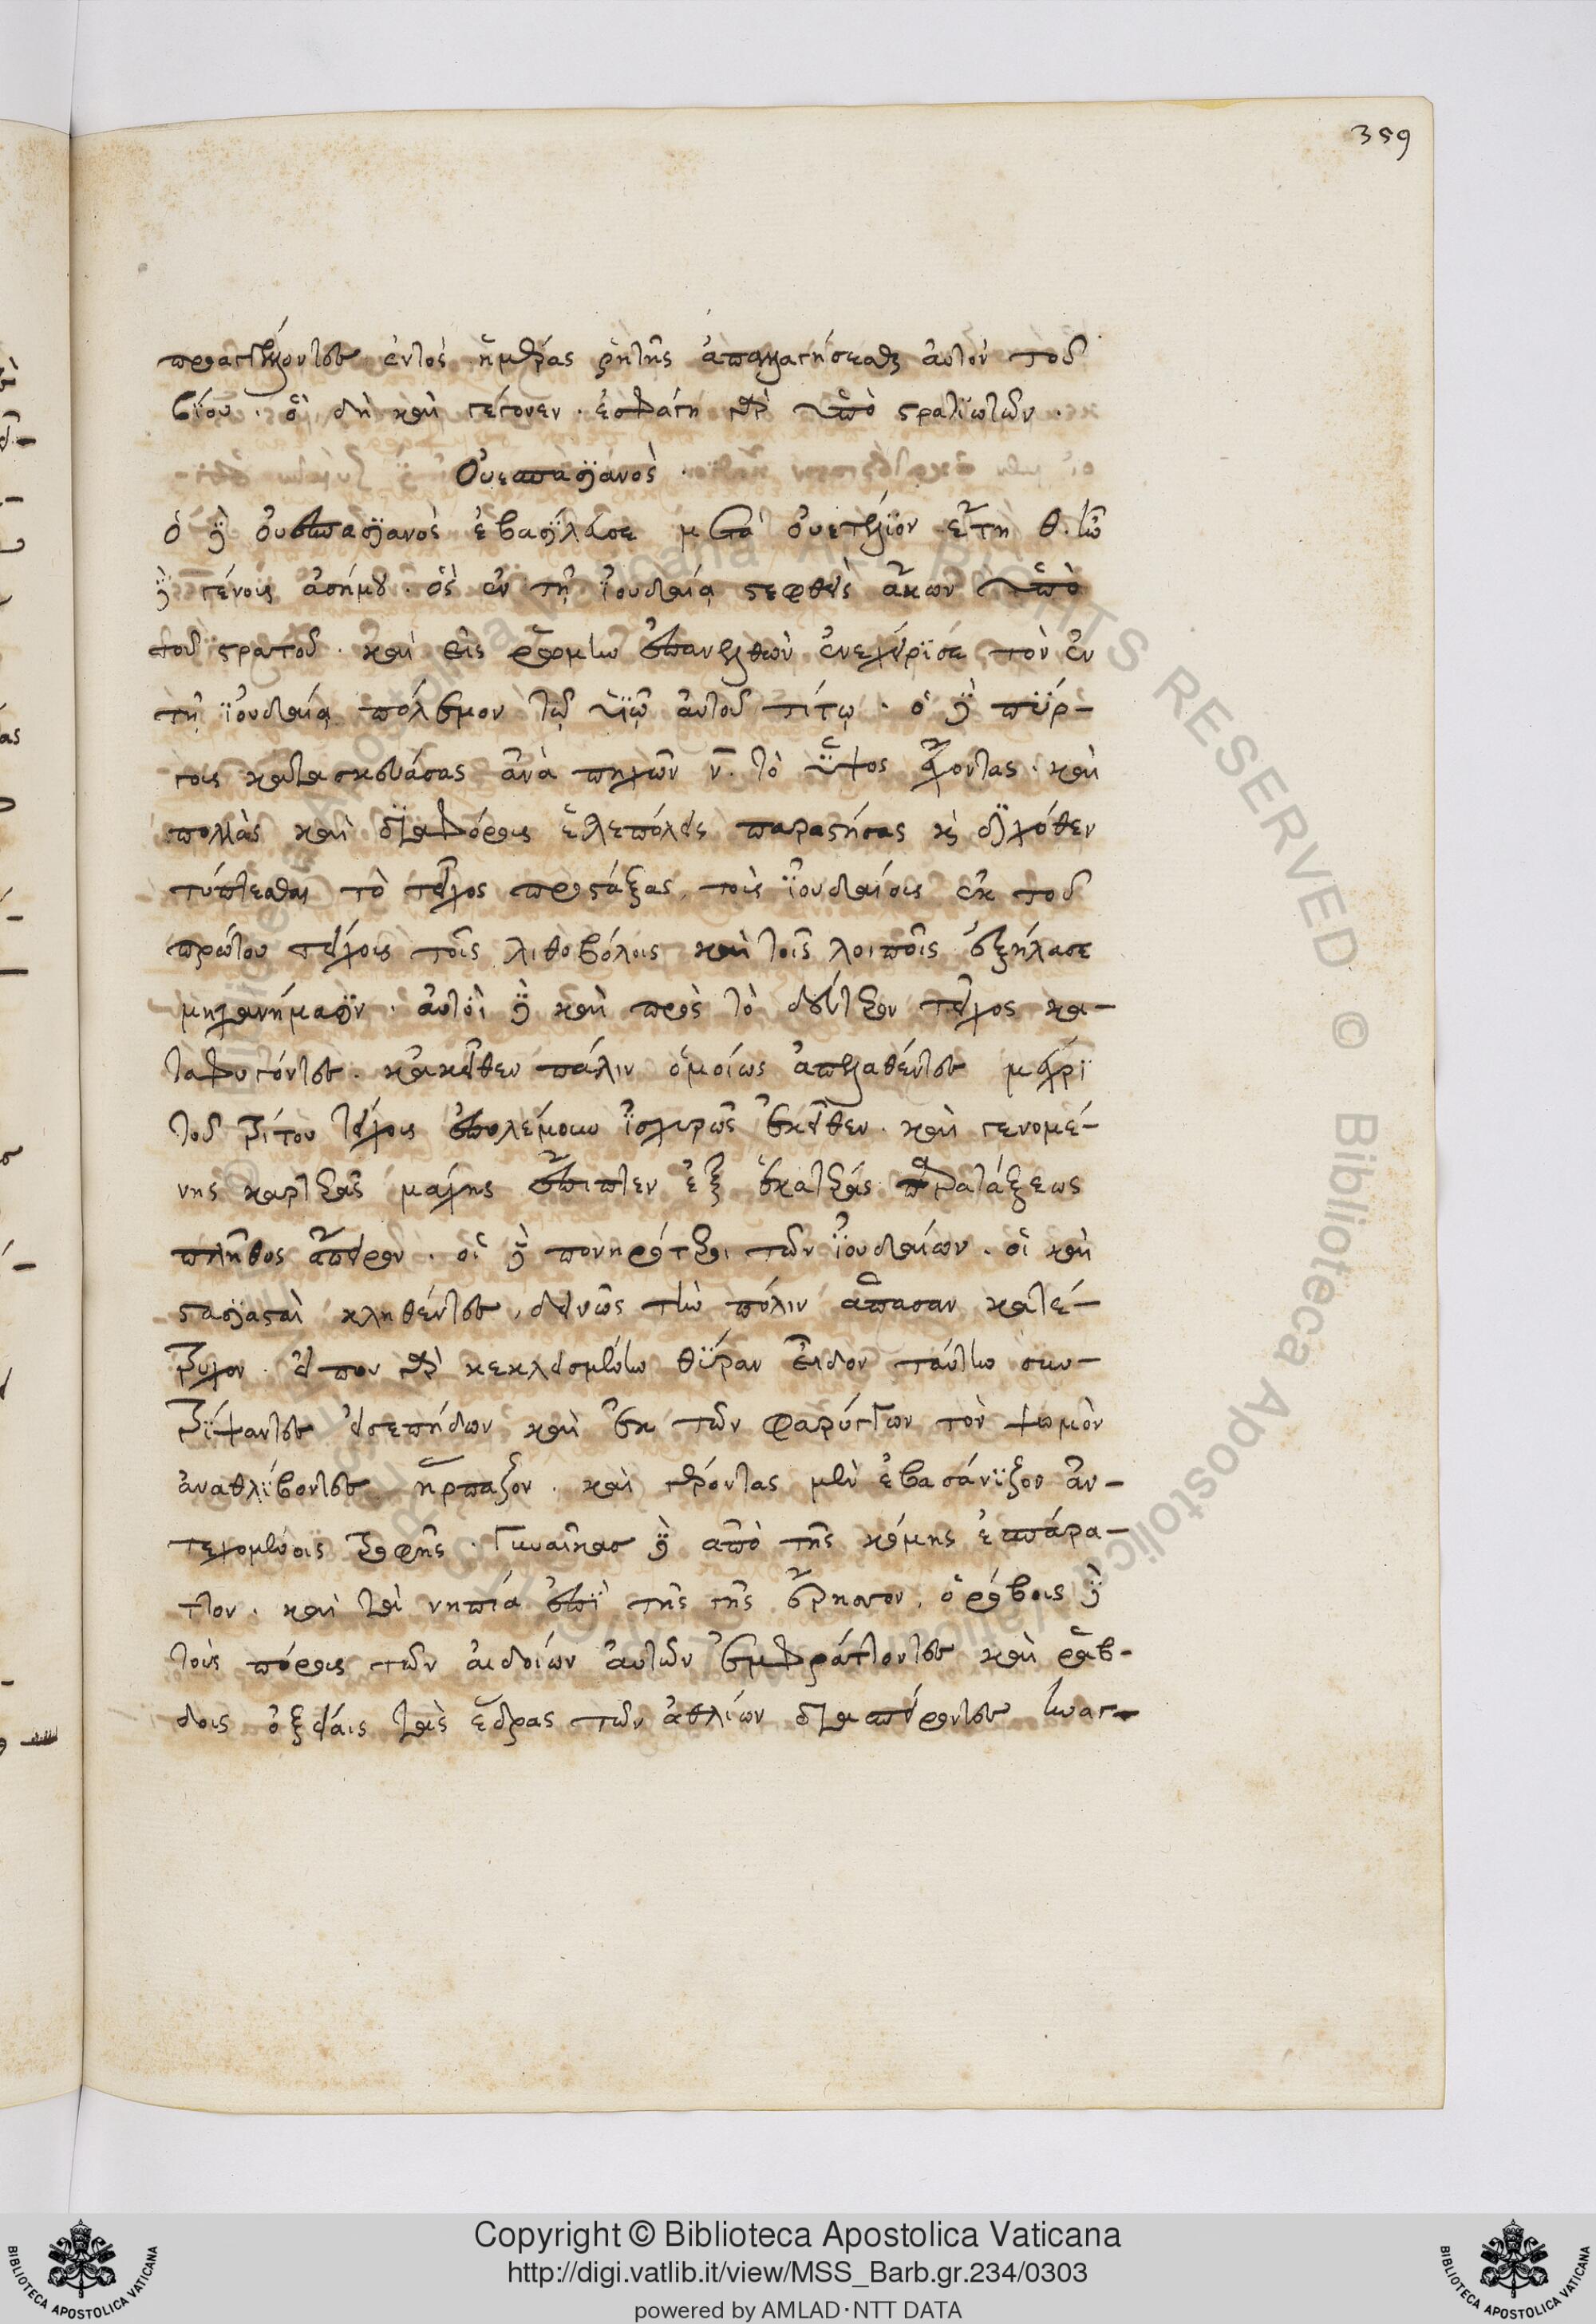 359
προαγγέλοντες ἐντὸς ἡμέρας ῥητῆς ἀπαλλαγήσεσθαι αὐτὸν τοῦ
βίου. ὃ δὴ καὶ γέγονεν. ἐσφάγη γὰρ ὑπὸ στρατιωτῶν.
Οὐεσπασιανός.
ὁ δὲ οὐεσπασιανὸς ἐβασίλευσε μετὰ οὐιτέλιον ἔτη θ. ὢν
δὲ γένους ἀσήμου. ὃς ἐν τῇ ἰουδαίᾳ στεφθεὶς ἄκων ὑπὸ
τοῦ στρατοῦ. καὶ εἰς ῥώμην ἐπανελθὼν ἐνεχείρισε τὸν ἐν
τῇ ἰουδαίᾳ πόλεμον τῷ υἱῷ αὐτοῦ τίτῳ. ὁ δὲ πύρ-
γους κατασκευάσας ἀνὰ πηχῶν ν. τὸ ὕψος ἔχοντας. καὶ
πολλὰς καὶ διαφόρους ἑλεπόλεις παραστήσας καὶ διχόθεν
τύπτεσθαι τὸ τεῖχος προστάξας, τοὺς ἰουδαίους ἐκ τοῦ
πρώτου τείχους τοῖς λιθοβόλοις καὶ τοῖς λοιποῖς ἐξήλασε
μηχανήμασιν. αὐτοὶ δὲ καὶ πρὸς τὸ δεύτερον τεῖχος κα-
ταφυγόντες. κἀκεῖθεν πάλιν ὁμοίως ἀπελαθέντες μέχρι
τοῦ τρίτου τείχους ἐπολέμουν ἰσχυρῶς ἐκεῖθεν. καὶ γενομέ-
νης καρτερᾶς μάχης ἔπιπτεν ἐξ ἑκατέρας παρατάξεως
πλῆθος ἄπειρον. οἱ δὲ πονηρότεροι τῶν ἰουδαίων. οἳ καὶ
στασιασταὶ κληθέντες, δεινῶς τὴν πόλιν ἅπασαν κατέ-
τρυχον. εἴ που γὰρ κεκλεισμένην θύραν εἶδον ταύτην συν-
τρίψαντες εἰσεπήδων καὶ ἐκ τῶν φαρύγγων τὸν ψωμὸν
ἀναθλίβοντες ἥρπαζον. καὶ γέροντας μὲν ἐβασάνιζον ἀν-
τεχομένους τροφῆς. γυναῖκας δὲ ἀπὸ τῆς κόμης ἐσπάρα-
ττον. καὶ τὰ νήπια ἐπὶ τῆς γῆς ἔρησσον, ὀρόβοις δὲ
τοὺς πόρους τῶν αἰδοίων αὐτῶν ἐμφράττοντες καὶ ῥάβ-
δοις ὀξείαις τὰς ἕδρας τῶν ἀθλίων διαπείροντες ἠναγ-
Copyright © Biblioteca Apostolica Vaticana
http://digi.vatlib.it/view/MSS_Barb.gr.234/0303
powered by AMLAD·NTT DATA